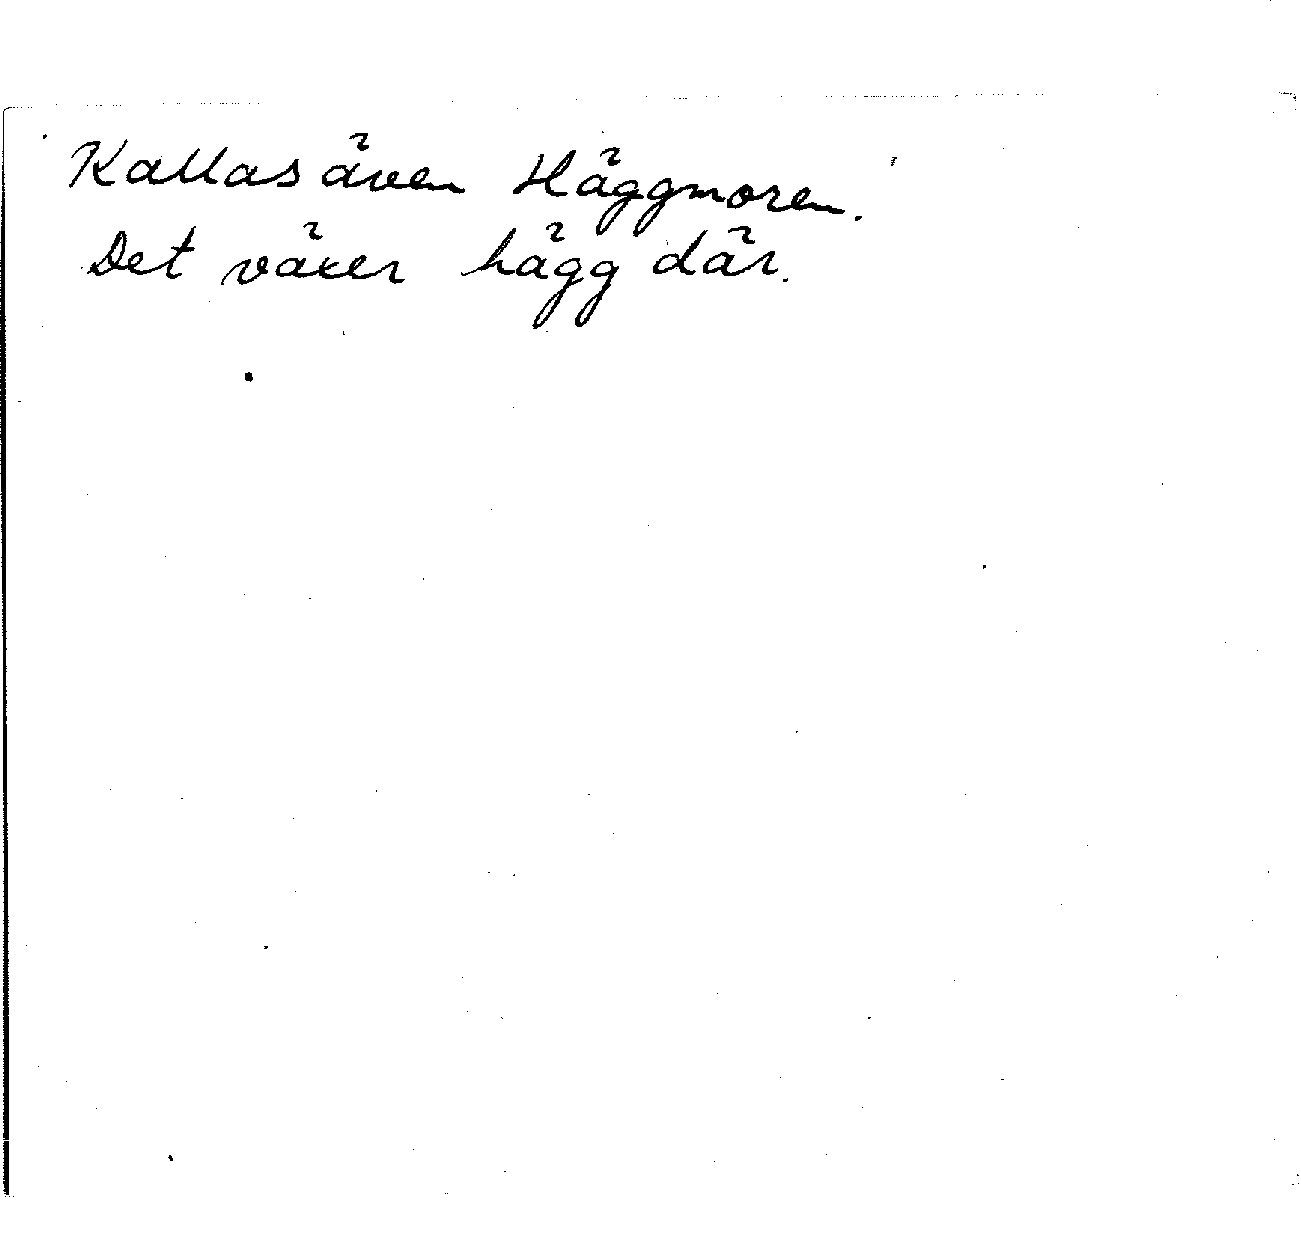 Kallas även Häggmoren.
Det växer hägg där.